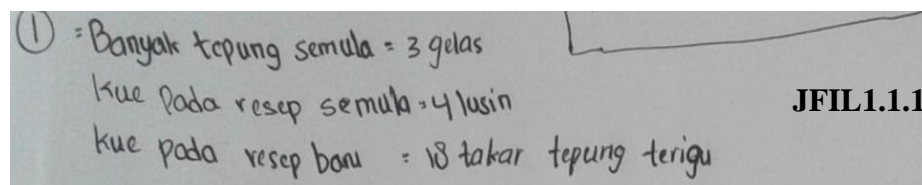 ① : Banyak tepung semula = 3 gelas
Kue pada resep semula = 4 lusin
JFIL1.1.1
kue pada resep baru = 18 takar tepung terigu